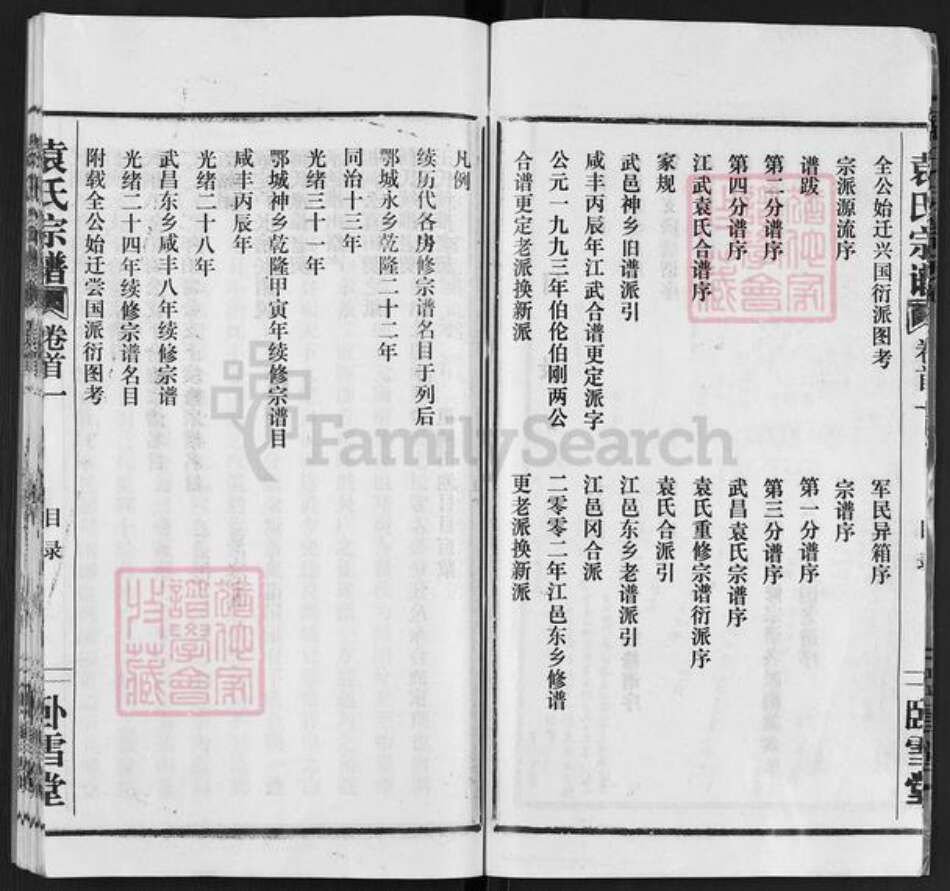 袁氏宗谱
卷首一
目录
卧雪堂
全公始迁兴国衍派图考
军民异箱序
宗派源流序
宗谱序
谱跋
第一分谱序
第二分谱序
第三分谱序
第四分谱序
武昌袁氏宗谱序
江武袁氏合谱序
袁氏重修宗谱衍派序
家规
袁氏合派引
武邑神乡旧谱派引
江邑东乡老谱派引
咸丰丙辰年江武合谱更定派字
江邑冈合派
公元一九九三年伯伦伯刚两公
二零零二年江邑东乡修谱
合谱更定老派换新派
更老派换新派
凡例
续历代各房修宗谱名目于列后
鄂城永乡乾隆二十二年
同治十三年
光绪三十一年
鄂城神乡乾隆甲寅年续修宗谱目
咸丰丙辰年
光绪二十八年
武昌东乡咸丰八年续修宗谱
光绪二十四年续修宗谱名目
附载全公始迁尝国派衍图考
袁氏宗谱
卷首一
目录
卧雪堂
FamilySearch